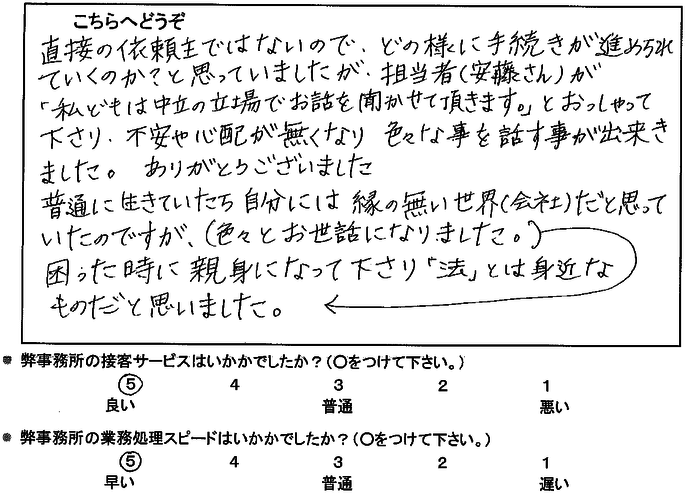 こちらへどうぞ
直接の依頼主ではないので、どの様に手続きが進められ
ていくのか?と思っていましたが、担当者(安藤さん)が
「私どもは中立の立場でお話を聞かせて頂きます。」とおっしゃって
下さり、不安や心配が無くなり 色々な事を話す事が出来き
ました。 ありがとうございました
普通に生きていたら自分には縁の無い世界(会社)だと思って
いたのですが、(色々とお世話になりました。)
困った時に親身になって下さり「法」とは身近な
ものだと思いました。
● 弊事務所の接客サービスはいかかでしたか?(○をつけて下さい。)
⑤ 4 3 2 1
良い 普通 悪い
● 弊事務所の業務処理スピードはいかかでしたか?(○をつけて下さい。)
⑤ 4 3 2 1
早い 普通 遅い